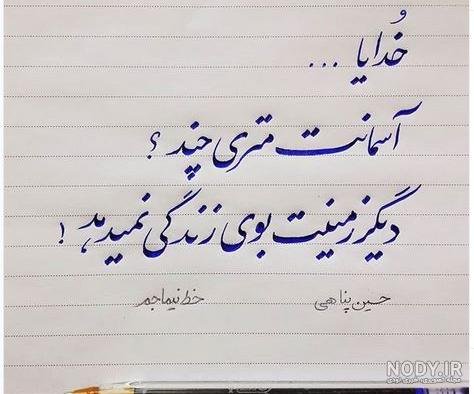 خُدایا ...
آسمانت متری چند ؟
دیگر زمینت بوی زندگی نمیدهد !
حسین پناهی    خط نیما جم
NODY.IR